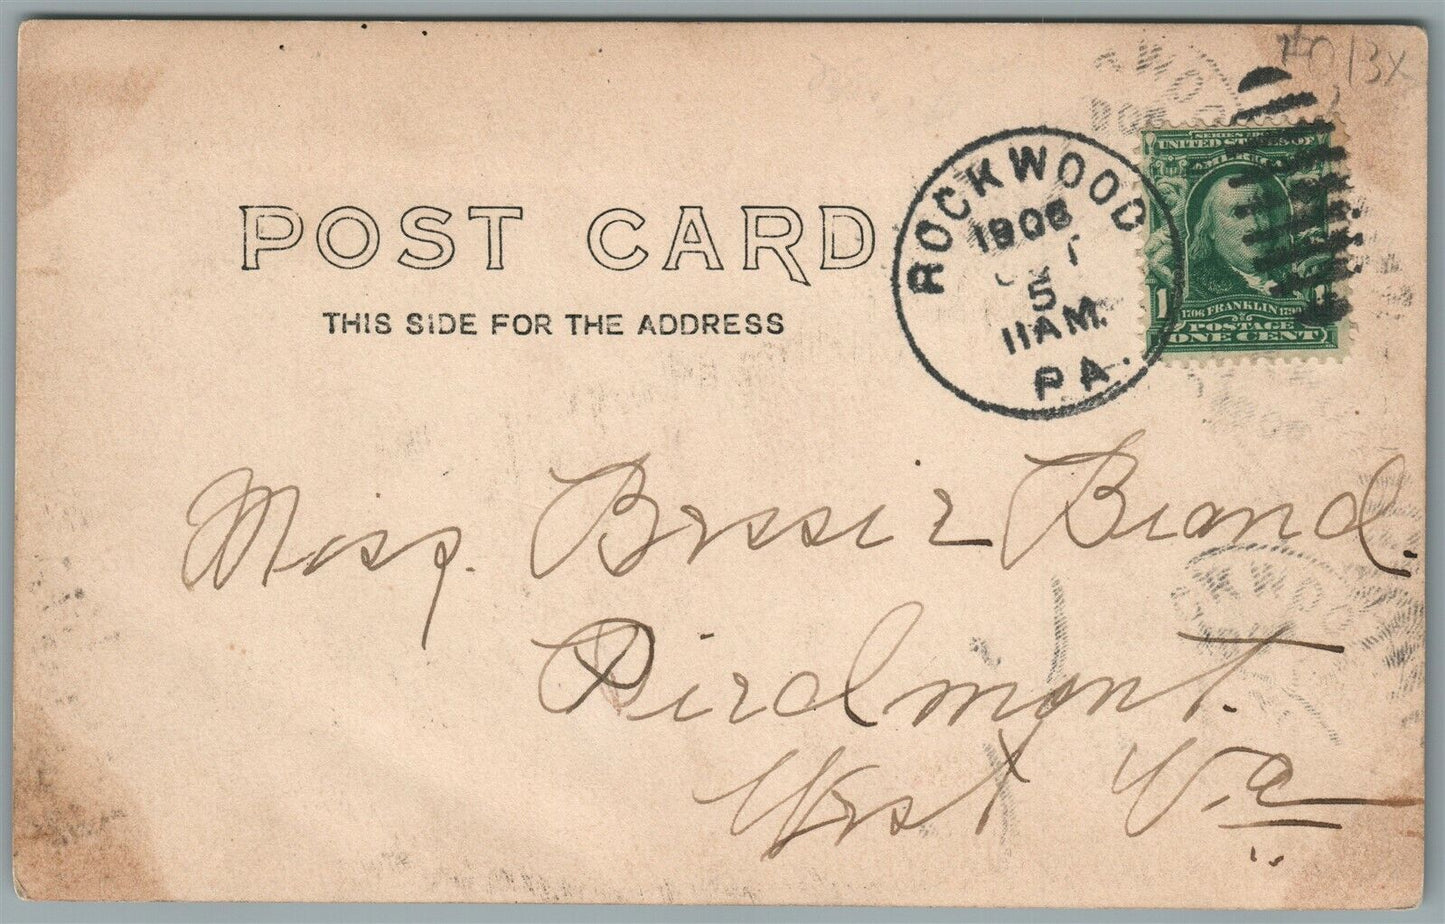 POST CARD
THIS SIDE FOR THE ADDRESS
ROCKWOOD
1906
OCT
5
11 AM.
PA.
UNITED STATES OF
AMERICA
1706 FRANKLIN 1790
POSTAGE
1 ONE CENT 1
Miss. Bessie Biand.
Piedmont.
West Va